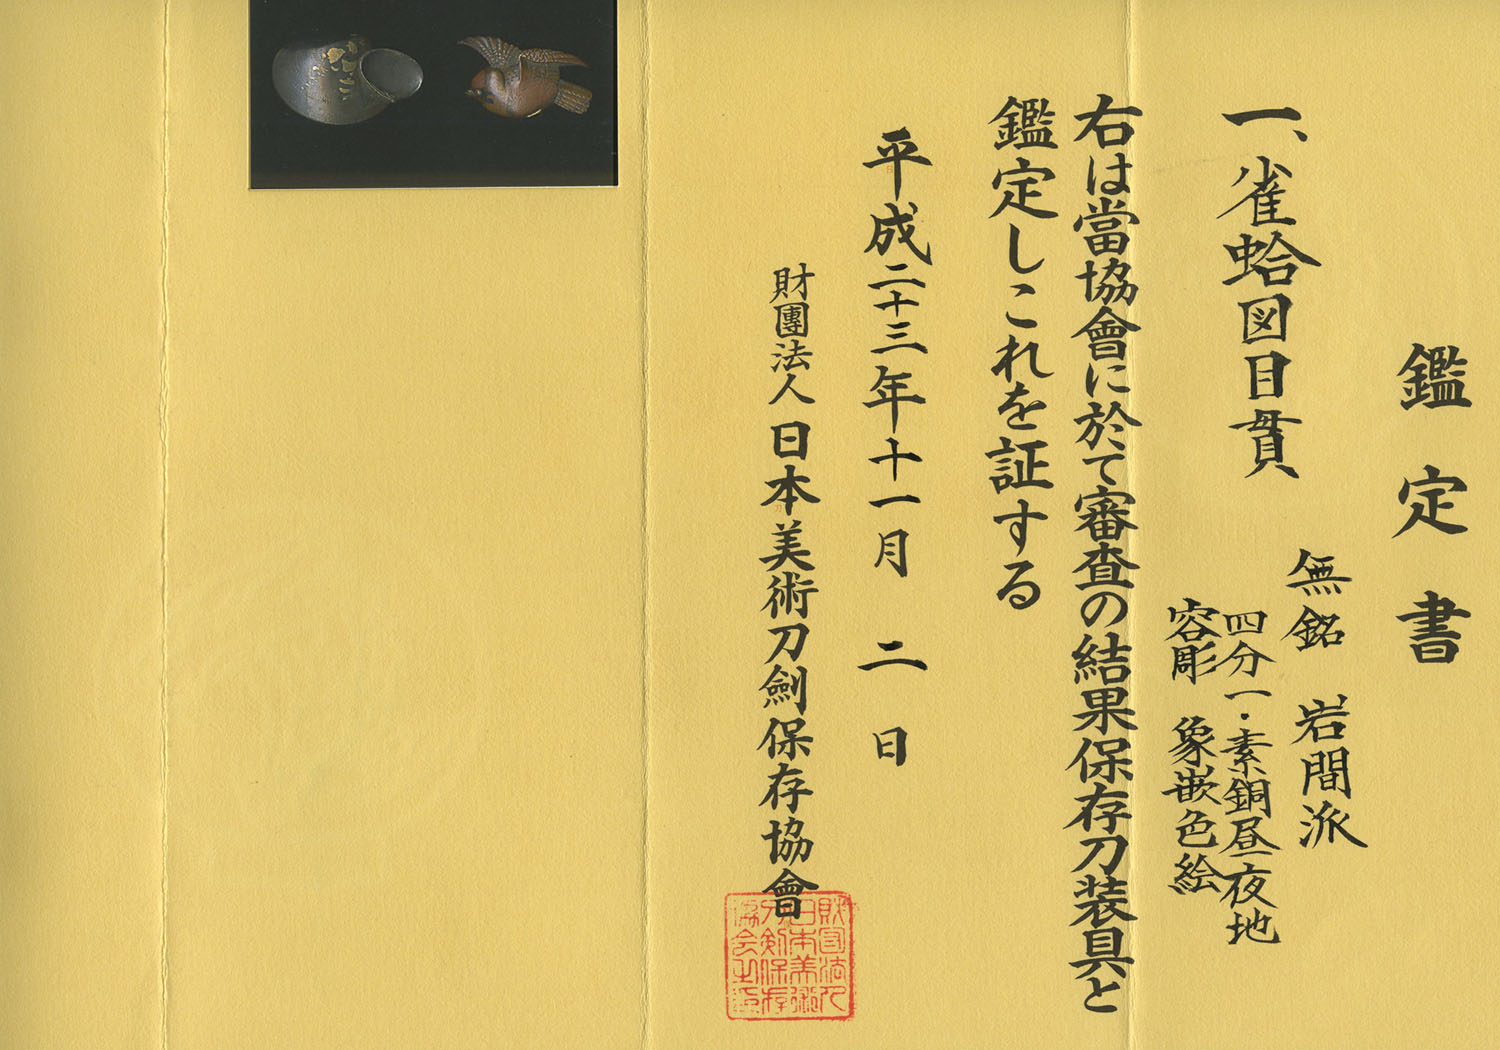 鑑定書
一、雀蛤図目貫
無銘 岩間派
四分一・素銅昼夜地
容彫 象嵌色絵
右は當協會に於て審査の結果保存刀装具と
鑑定しこれを証する
平成二十三年十一月 二 日
財團法人日本美術刀劍保存協會
財団法人
日本美術
刀剣保存
協会之印